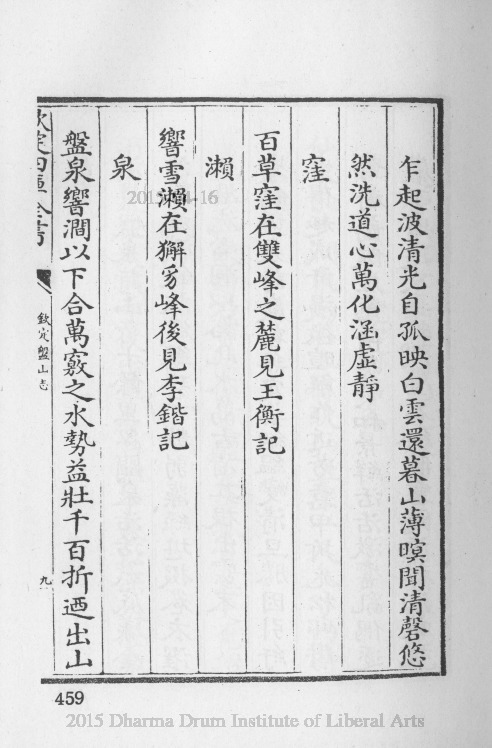 乍起波清光自孤映白雲還暮山薄暝聞清磬悠
然洗道心萬化涵虛靜
窪
百草窪在雙峰之麓見王衡記
瀨
響雪瀨在獬豸峰後見李鍇記
泉
盤泉響澗以下合萬竅之水勢益壯千百折迺出山
欽定四庫全書
欽定盤山志
九
459
2015 Dharma Drum Institute of Liberal Arts